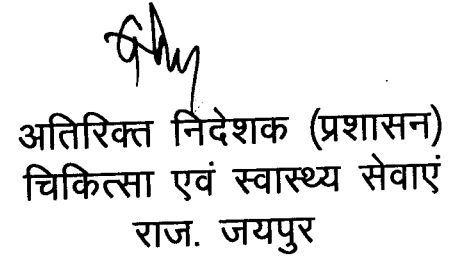 अतिरिक्त निदेशक (प्रशासन)
चिकित्सा एवं स्वास्थ्य सेवाएं
राज. जयपुर